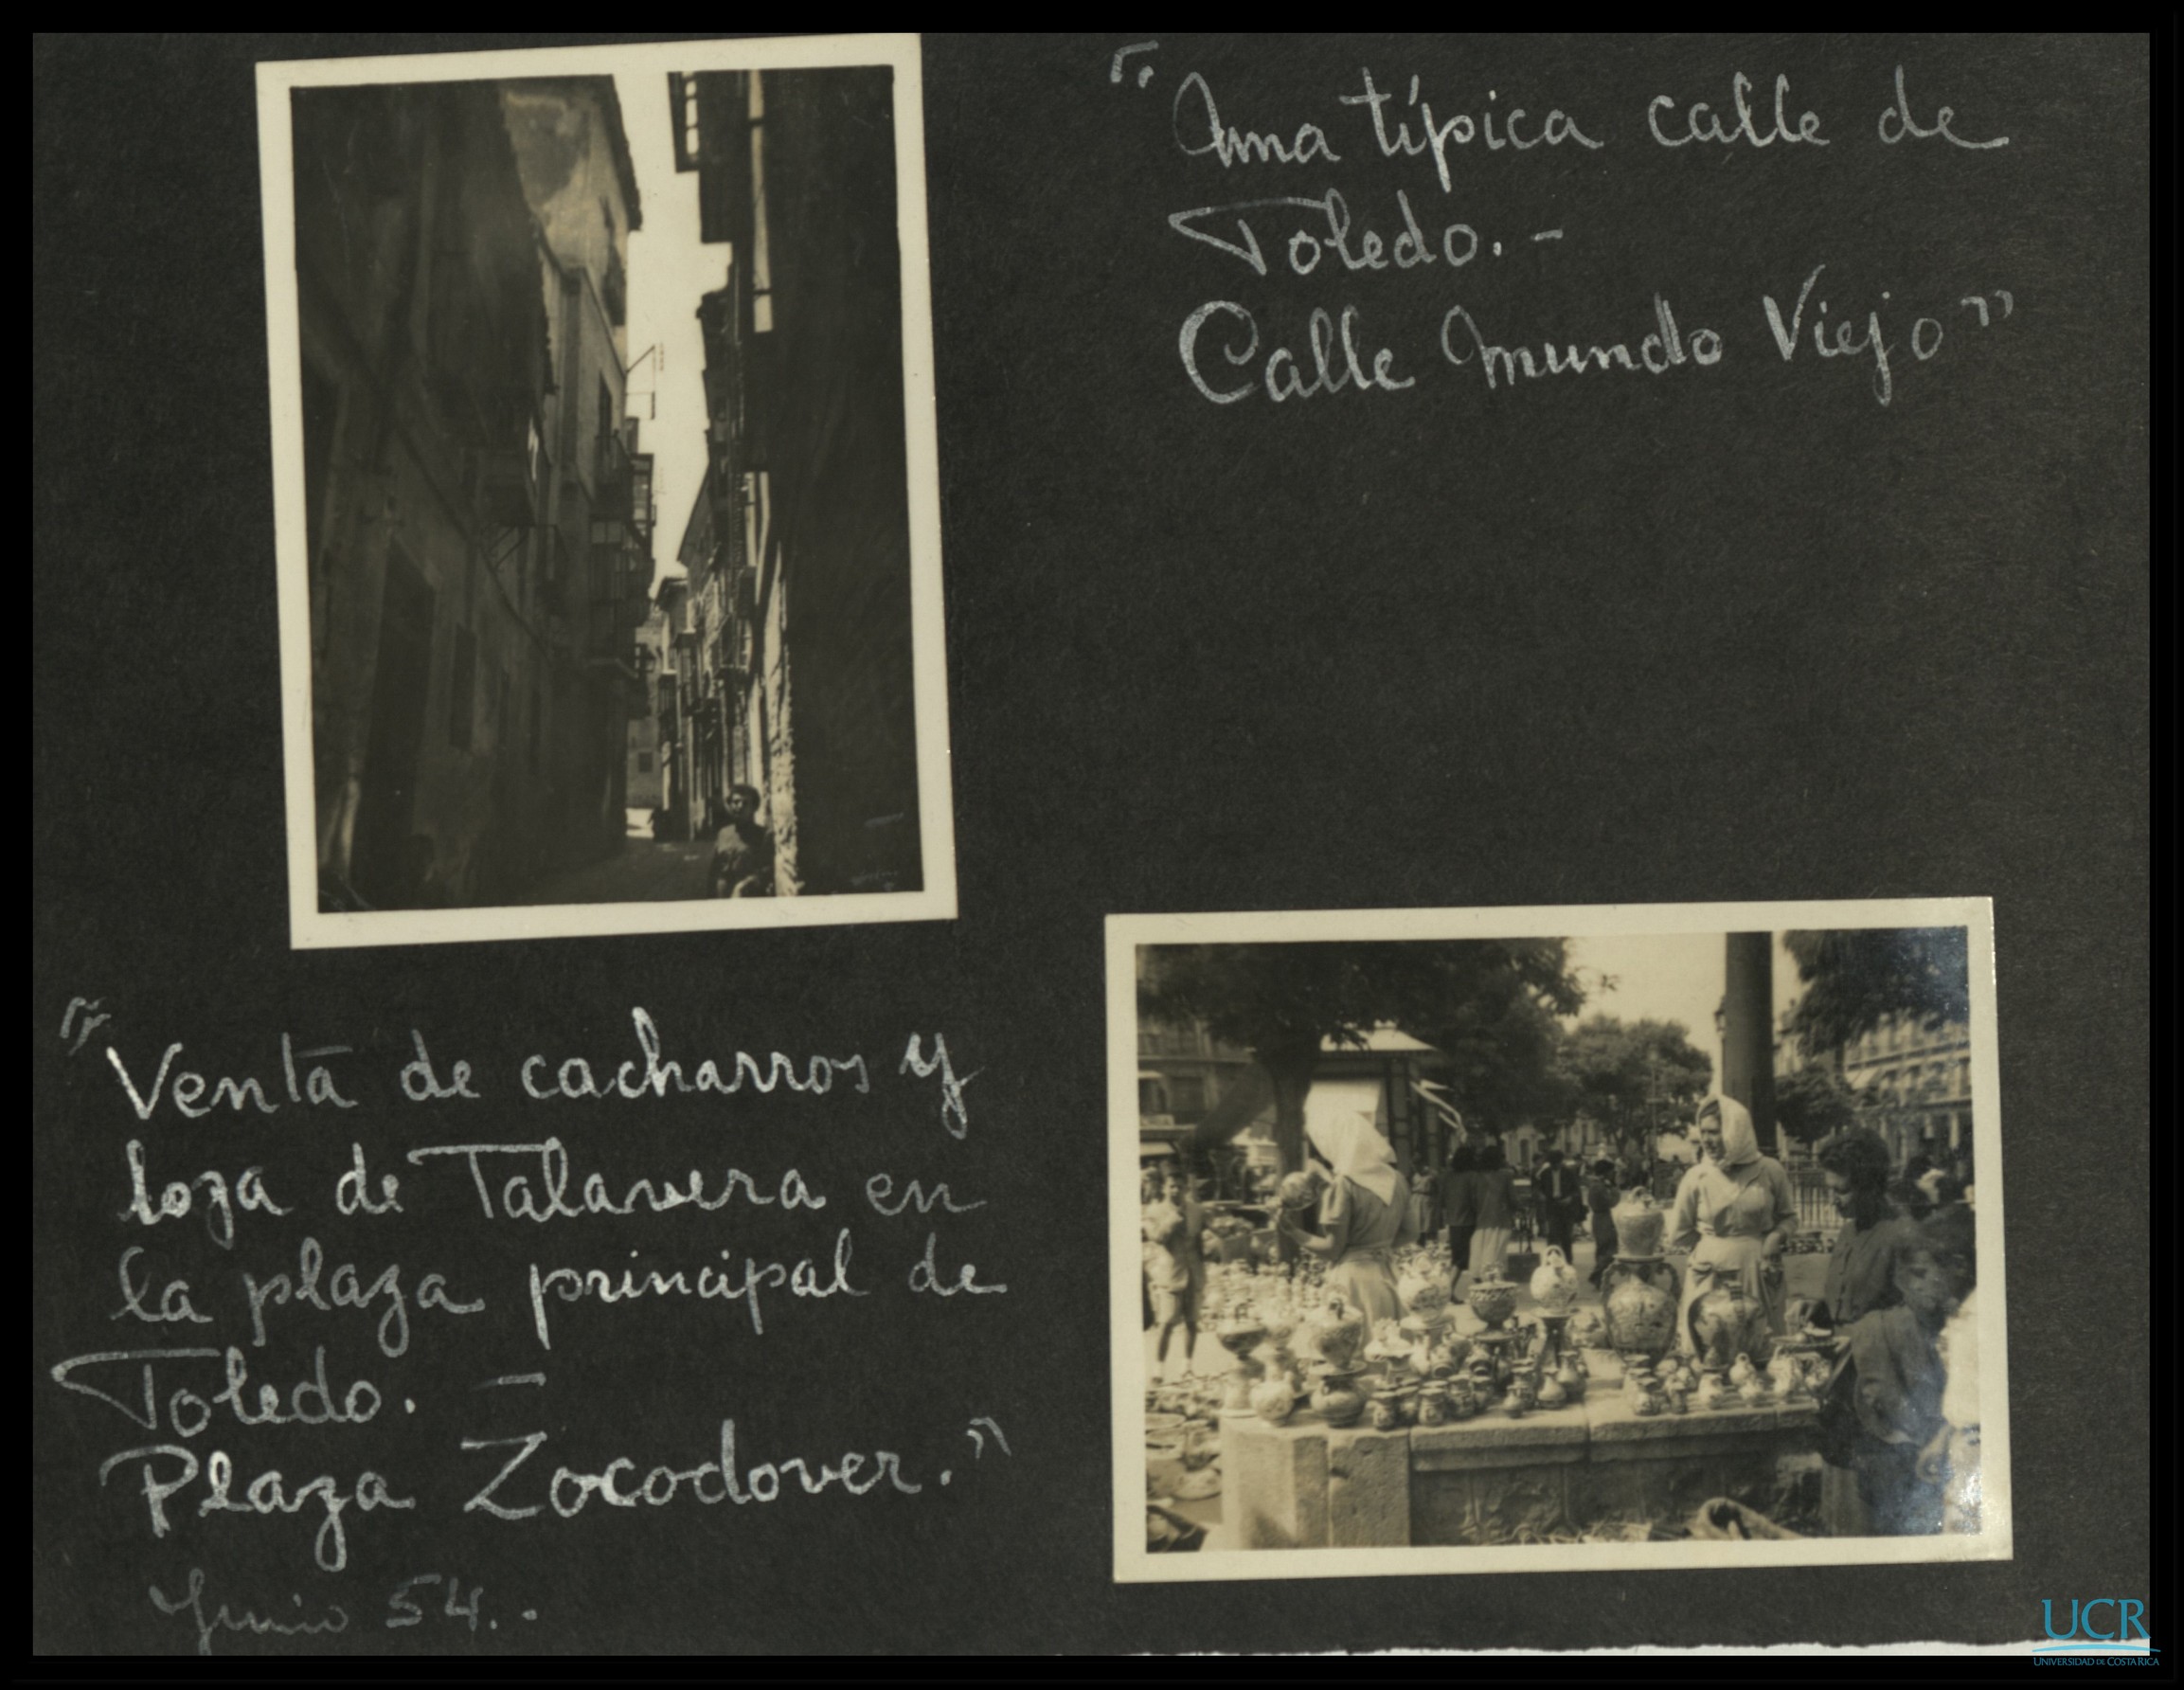 "Una típica calle de
Toledo.-
Calle Mundo Viejo"
"Venta de cacharros y
loza de Talavera en
la plaza principal de
Toledo. -
Plaza Zocodover."
Junio 54.-
UCR
UNIVERSIDAD DE COSTA RICA